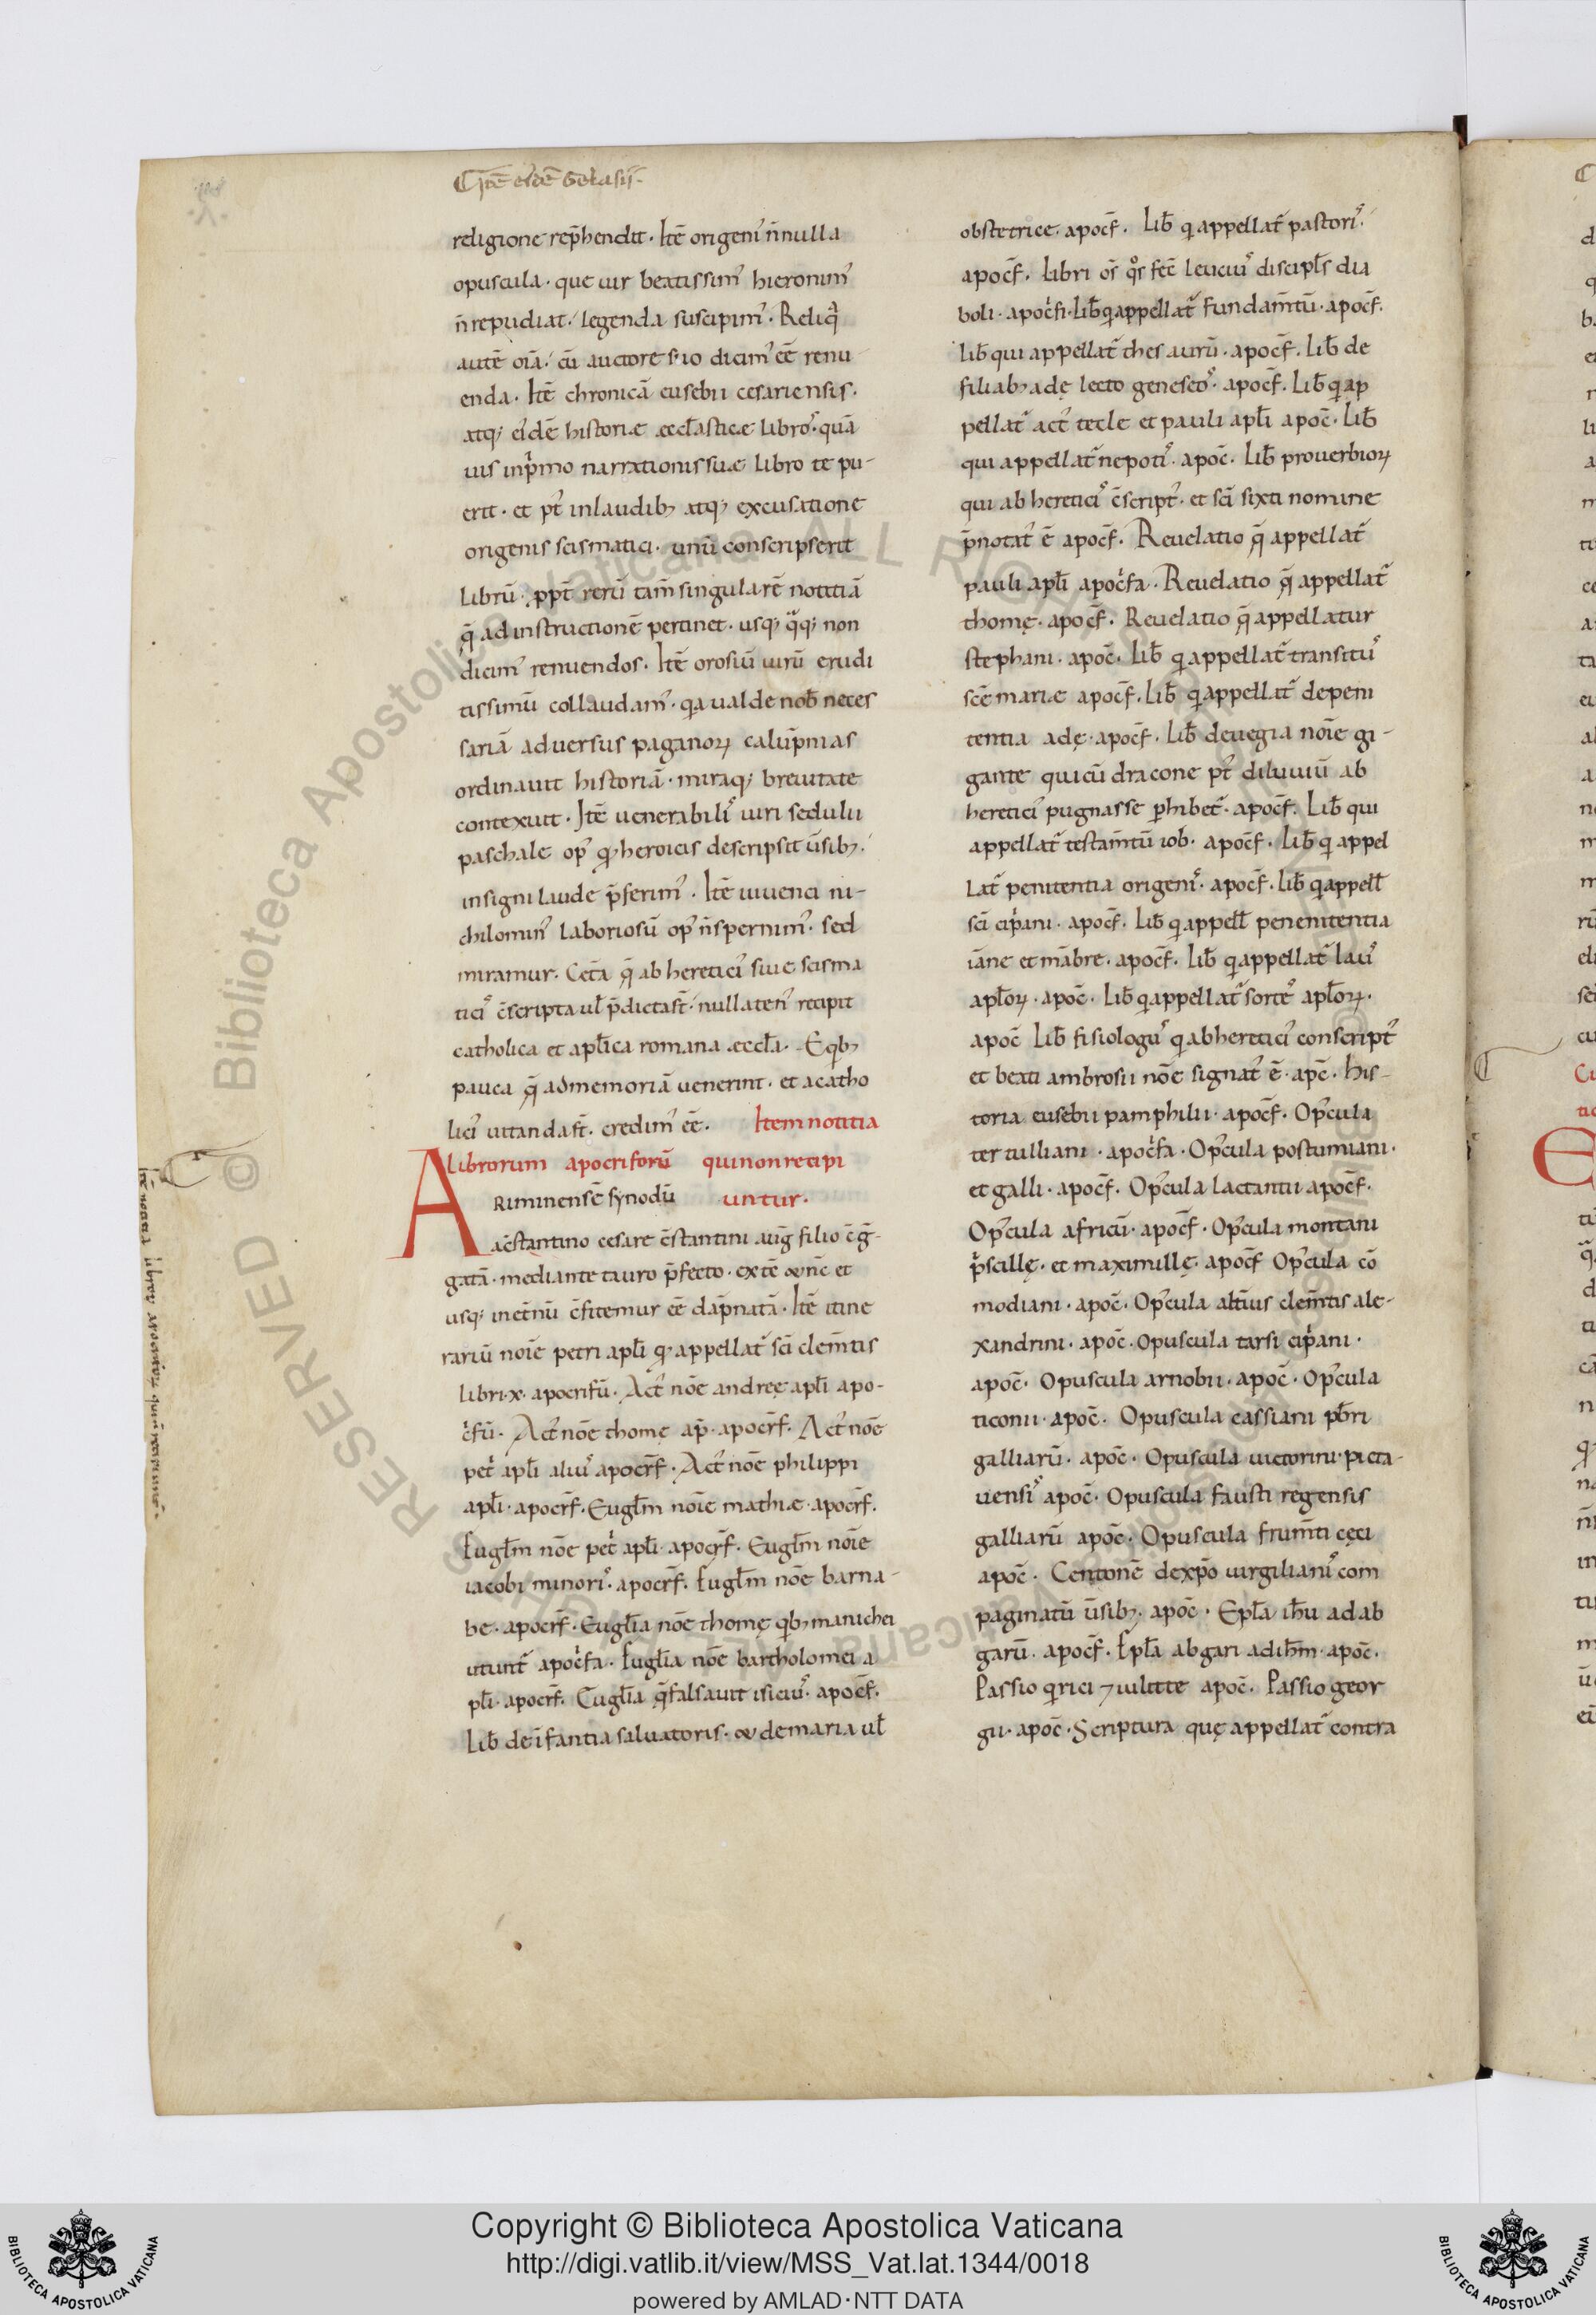 Itē eiꝰdē Gelasii.
religione rep̄hendit. Itē origeniꝰ n̄nulla
opuscula. que uir beatissimꝰ hieronimꝰ
n̄ repudiat. legenda suscipimꝰ. Reliq̃
autē oīa. cū auctore suo dicimꝰ eē renu
enda. Itē chronicā eusebii cesariensis.
atq; eiꝰdē historiae aeccl̄asticae libroꝰ. quā
uis inp̓mo narrationis suae libro tepu-
erit. et pꝰt inlaudib; atq; excusatione
origenis scismatici. unū conscripserit
librū. ꝓpt̄ rerū tam̄ singularē notitiā
q̄ ad instructionē pertinet. usq; q̃q; non
dicimꝰ renuendos. Itē orosiū uirū erudi
tissimū collaudamꝰ. qa ualde nob̄ neces
sariā aduersus paganoꝝ calūpnias
ordinauit historiā. miraq; breuitate
contexuit. Itē uenerabiliꝰ uiri sedulii
paschale opꝰ qđ heroicis descripsit ūsib;.
insigni laude p̄ferimꝰ. Itē iuuenci ni-
chilominꝰ laboriosū opꝰ n̄ spernimꝰ. sed
miramur. Cet̄a q̄ ab hereticiꝰ siue scisma
ticiꝰ c̄scripta ul̄ p̄dicta st̄. nullatenꝰ recipit
catholica et apl̄ica romana aeccl̄a. Eqb;
pauca q̄ ad memoriā uenerint. et a catho
liciꝰ uitanda st̄. credimꝰ eē. Item notitia
librorum apocriforū qui non recipi
untur.
Ariminensē synodū
a c̄stantino cesare c̄stantini auḡ filio c̄ḡ-
gatā. mediante tauro p̄fecto. ex tē & nc̄ et
usq; inet̄nū c̄fitemur eē dāpnatā. Itē itine
rariū noīe petri apl̄i qđ appellat̄ sc̄i clem̄tis
libri.x. apocrifū. Actꝰ nōe andreę apl̄i apo-
c̓fū. Actꝰ nōe thomę ap̄. apocr̄f. Actꝰ nōe
pet̓ apl̄i aliuꝰ apocr̄f. Actꝰ nōe philippi
apl̄i. apocr̄f. Eugl̄m noīe mathiae. apocr̄f.
Eugl̄m nōe pet̓ apl̄i. apocr̄f. Eugl̄m noīe
iacobi minoriꝰ. apocr̄f. Eugl̄m nōe barna-
be. apocr̄f. Eugl̄ia nōe thomę qb; manichei
utunt̄ apoc̓fa. Eugl̄ia nōe bartholomei a
pl̄i. apocr̄f. Eugl̄ia q̄ falsauit isiciuꝰ. apoc̄f.
Lib̄ de īfantia saluatoris. & de maria ul̄
obstetrice. apoc̄f. Lib̄ q appellat̄ pastoriꝰ.
apoc̄f. Libri os̄ qꝰs fec̄ leuciuꝰ discipl̄s dia
boli. apoc̓fi. Lib̄ q appellat̄ fundam̄tū. apoc̄f.
Lib̄ qui appellat̄ thesaurū. apoc̄f. Lib̄ de
filiab; adę lecto geneseoꝰ. apoc̄f. Lib̄ q ap
pellat̄ actꝰ tecle et pauli apl̄i apoc̄. Lib̄
qui appellat̄ nepotiꝰ. apoc̄. Lib̄ prouerbioꝝ
qui ab hereticiꝰ c̄scriptꝰ. et sc̄i sixti nomine
p̄notatꝰ ē apoc̄f. Reuelatio q̄ appellat̄
pauli apl̄i apoc̓fa. Reuelatio q̄ appellat̄
thomę. apoc̄f. Reuelatio q̄ appellatur
stephani. apoc̄. Lib̄ q appellat̄ transituꝰ
sc̄e mariae apoc̄f. Lib̄ q appellat̄ de peni
tentia adę. apoc̄f. Lib̄ de uegia noīe gi-
gante qui cū dracone pꝰt diluuiū ab
hereticiꝰ pugnasse ꝑhibet̄. apoc̄f. Lib̄ qui
appellat̄ testam̄tū iob. apoc̄f. Lib̄ q appel
lat̄ penitentia origeniꝰ. apoc̄f. Lib̄ q appell̄
sc̄i cip̓ani. apoc̄f. Lib̄ q appell̄ penenitentia
iāne et mābre. apoc̄f. Lib̄ q appellat̄ laciꝰ
apl̄oꝝ. apoc̄. Lib̄ q appellat̄ sorteꝰ apl̄oꝝ.
apoc̄ Lib̄ fisiologuꝰ q ab hereticiꝰ conscriptꝰ
et beati ambrosii nōe signatꝰ ē. apc̄. His-
toria eusebii pamphilii. apoc̄f. Opꝰcula
tertulliani. apoc̓fa. Opꝰcula postumiani.
et galli. apoc̄f. Opꝰcula lactantii apoc̄f.
Opꝰcula africū. apoc̄f. Opꝰcula montani
p̓scillę. et maximillę. apoc̄f Opꝰcula cō
modiani. apoc̄. Opꝰcula alt̄ius clem̄tis ale-
xandrini. apoc̄. Opuscula tarsi cip̓ani.
apoc̄. Opuscula arnobii. apoc̄. Opꝰcula
ticonii. apoc̄. Opuscula cassiani pb̄ri
galliarū. apoc̄. Opuscula uictorini. picta-
uensiꝰ apoc̄. Opuscula fausti regensis
galliarū apoc̄. Opuscula frum̄ti cęci
apoc̄. Centonē de xp̄o uirgilianiꝰ com
paginatū ūsib;. apoc̄. Epl̄a ih̄u ad ab
garū. apoc̄f. Epl̄a abgari ad ih̄m. apoc̄.
Passio qrici ⁊ iulitte apoc̄. Passio geor
gii. apoc̄. Scriptura quę appellat̄ contra
Copyright © Biblioteca Apostolica Vaticana
http://digi.vatlib.it/view/MSS_Vat.lat.1344/0018
powered by AMLAD·NTT DATA